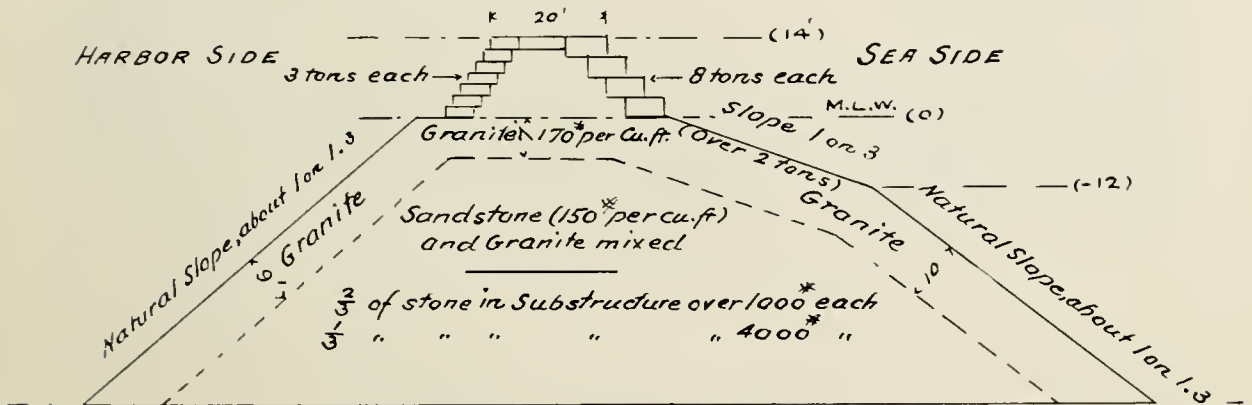 20'
(14')
HARBOR SIDE
SEA SIDE
3 tons each
8 tons each
M.L.W. (0)
Slope 1 on 3
Granite 170# per Cu.ft. (Over 2 tons)
(-12)
Natural Slope, about 1 on 1.3
Granite
Granite
Natural Slope, about 1 on 1.3
10
Sandstone (150# per cu.ft)
and Granite mixed
2/3 of stone in Substructure over 1000# each
1/3 " " " " " 4000# "